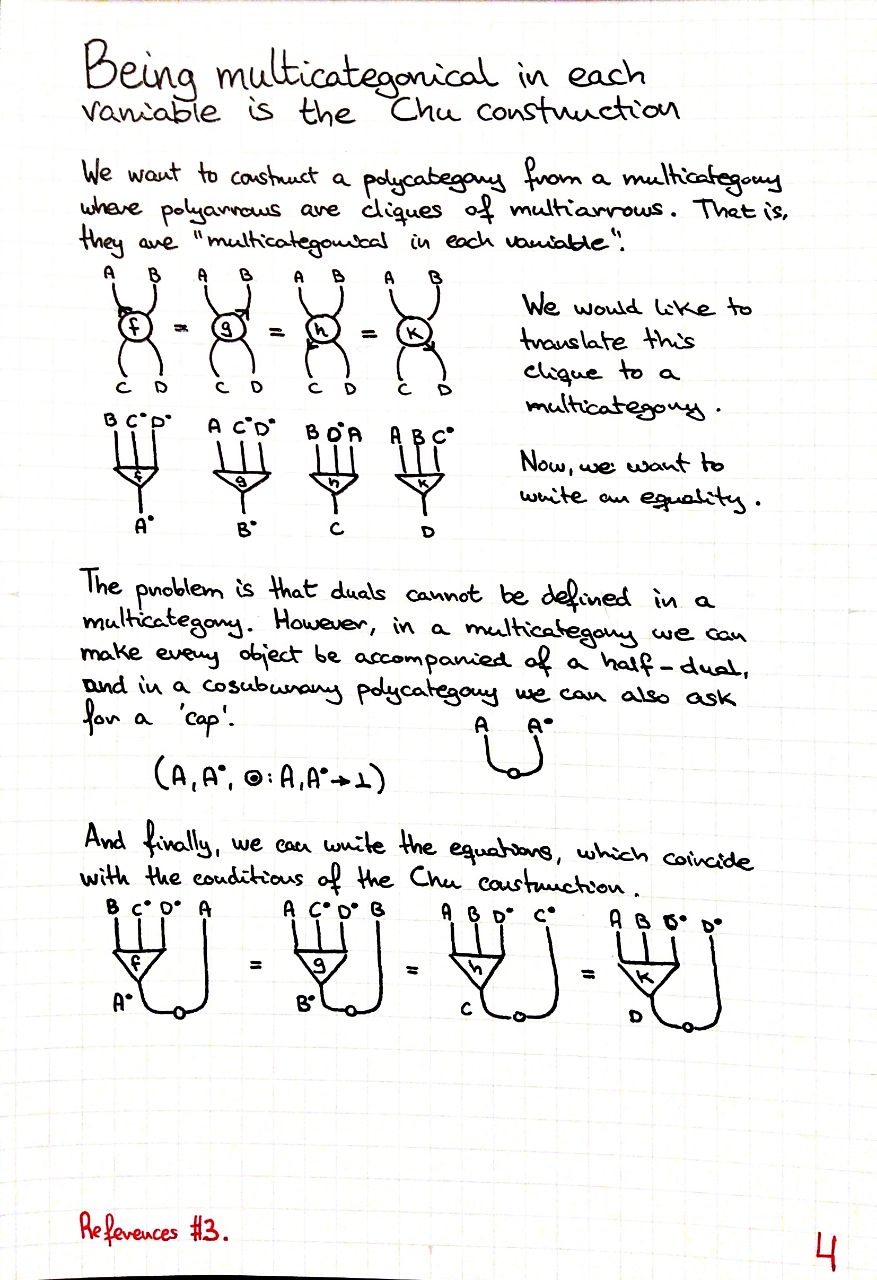 Being multicategorical in each
variable is the Chu construction
We want to construct a polycategory from a multicategory
where polyarrows are cliques of multiarrows. That is,
they are "multicategorical in each variable".
A B A B A B A B
f = g = h = k
C D C D C D C D
We would like to
translate this
clique to a
multicategory.
B C• D• A C• D• B D• A A B C•
f g h k
A• B• C D
Now, we want to
write an equality.
The problem is that duals cannot be defined in a
multicategory. However, in a multicategory we can
make every object be accompanied of a half-dual,
and in a cosubunary polycategory we can also ask
for a 'cap'.
A A•
(A, A•, ⊙: A, A• → ⊥)
And finally, we can write the equations, which coincide
with the conditions of the Chu construction.
B C• D• A A C• D• B A B D• C• A B C• D•
f = g = h = k
A• B• C D
References #3.
4